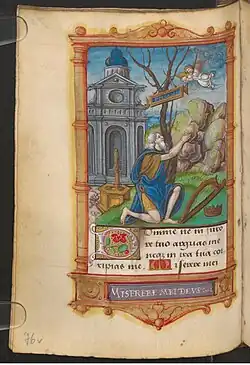 Domine ne in furo
re tuo arguas me
neq3 in ira tua cor
ripias me. Miserere mei
MISERERE MEI DEVS
76v